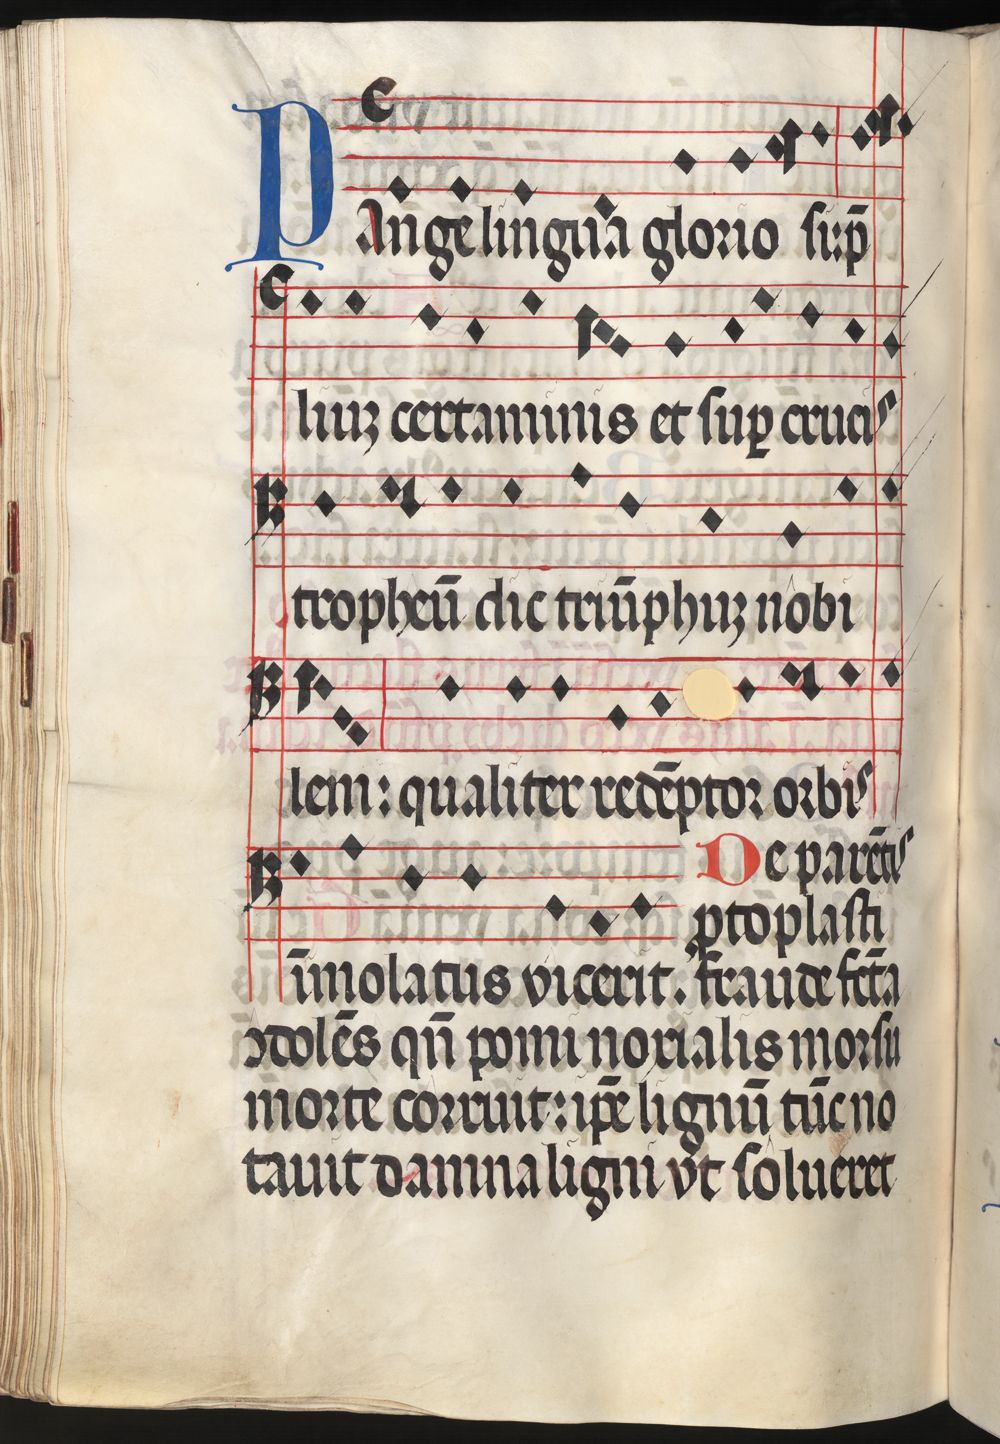 PAnge lingua glorio su:p̄
liuꝫ certaminis et sup crucis
tropheū dic triūphuꝫ nobi
lem: qualiter redēptor orbis
De parētis
ptoplasti
īmolatus vicerit. fraude fc̄ta
ↄdolēs qn̄ pomi noxialis morsu
morte corruit: ip̄e lignū tūc no
tauit damna ligni vt solueret